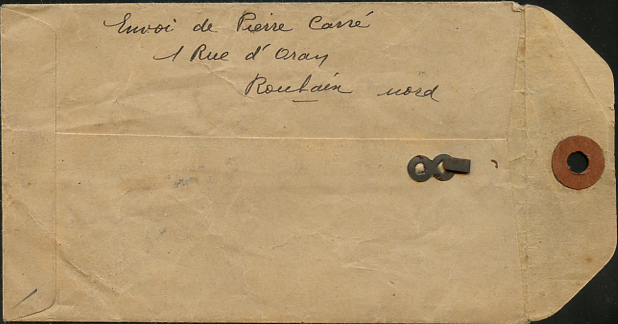 Envoi de Pierre Carré
1 Rue d'Oran
Roubaix nord